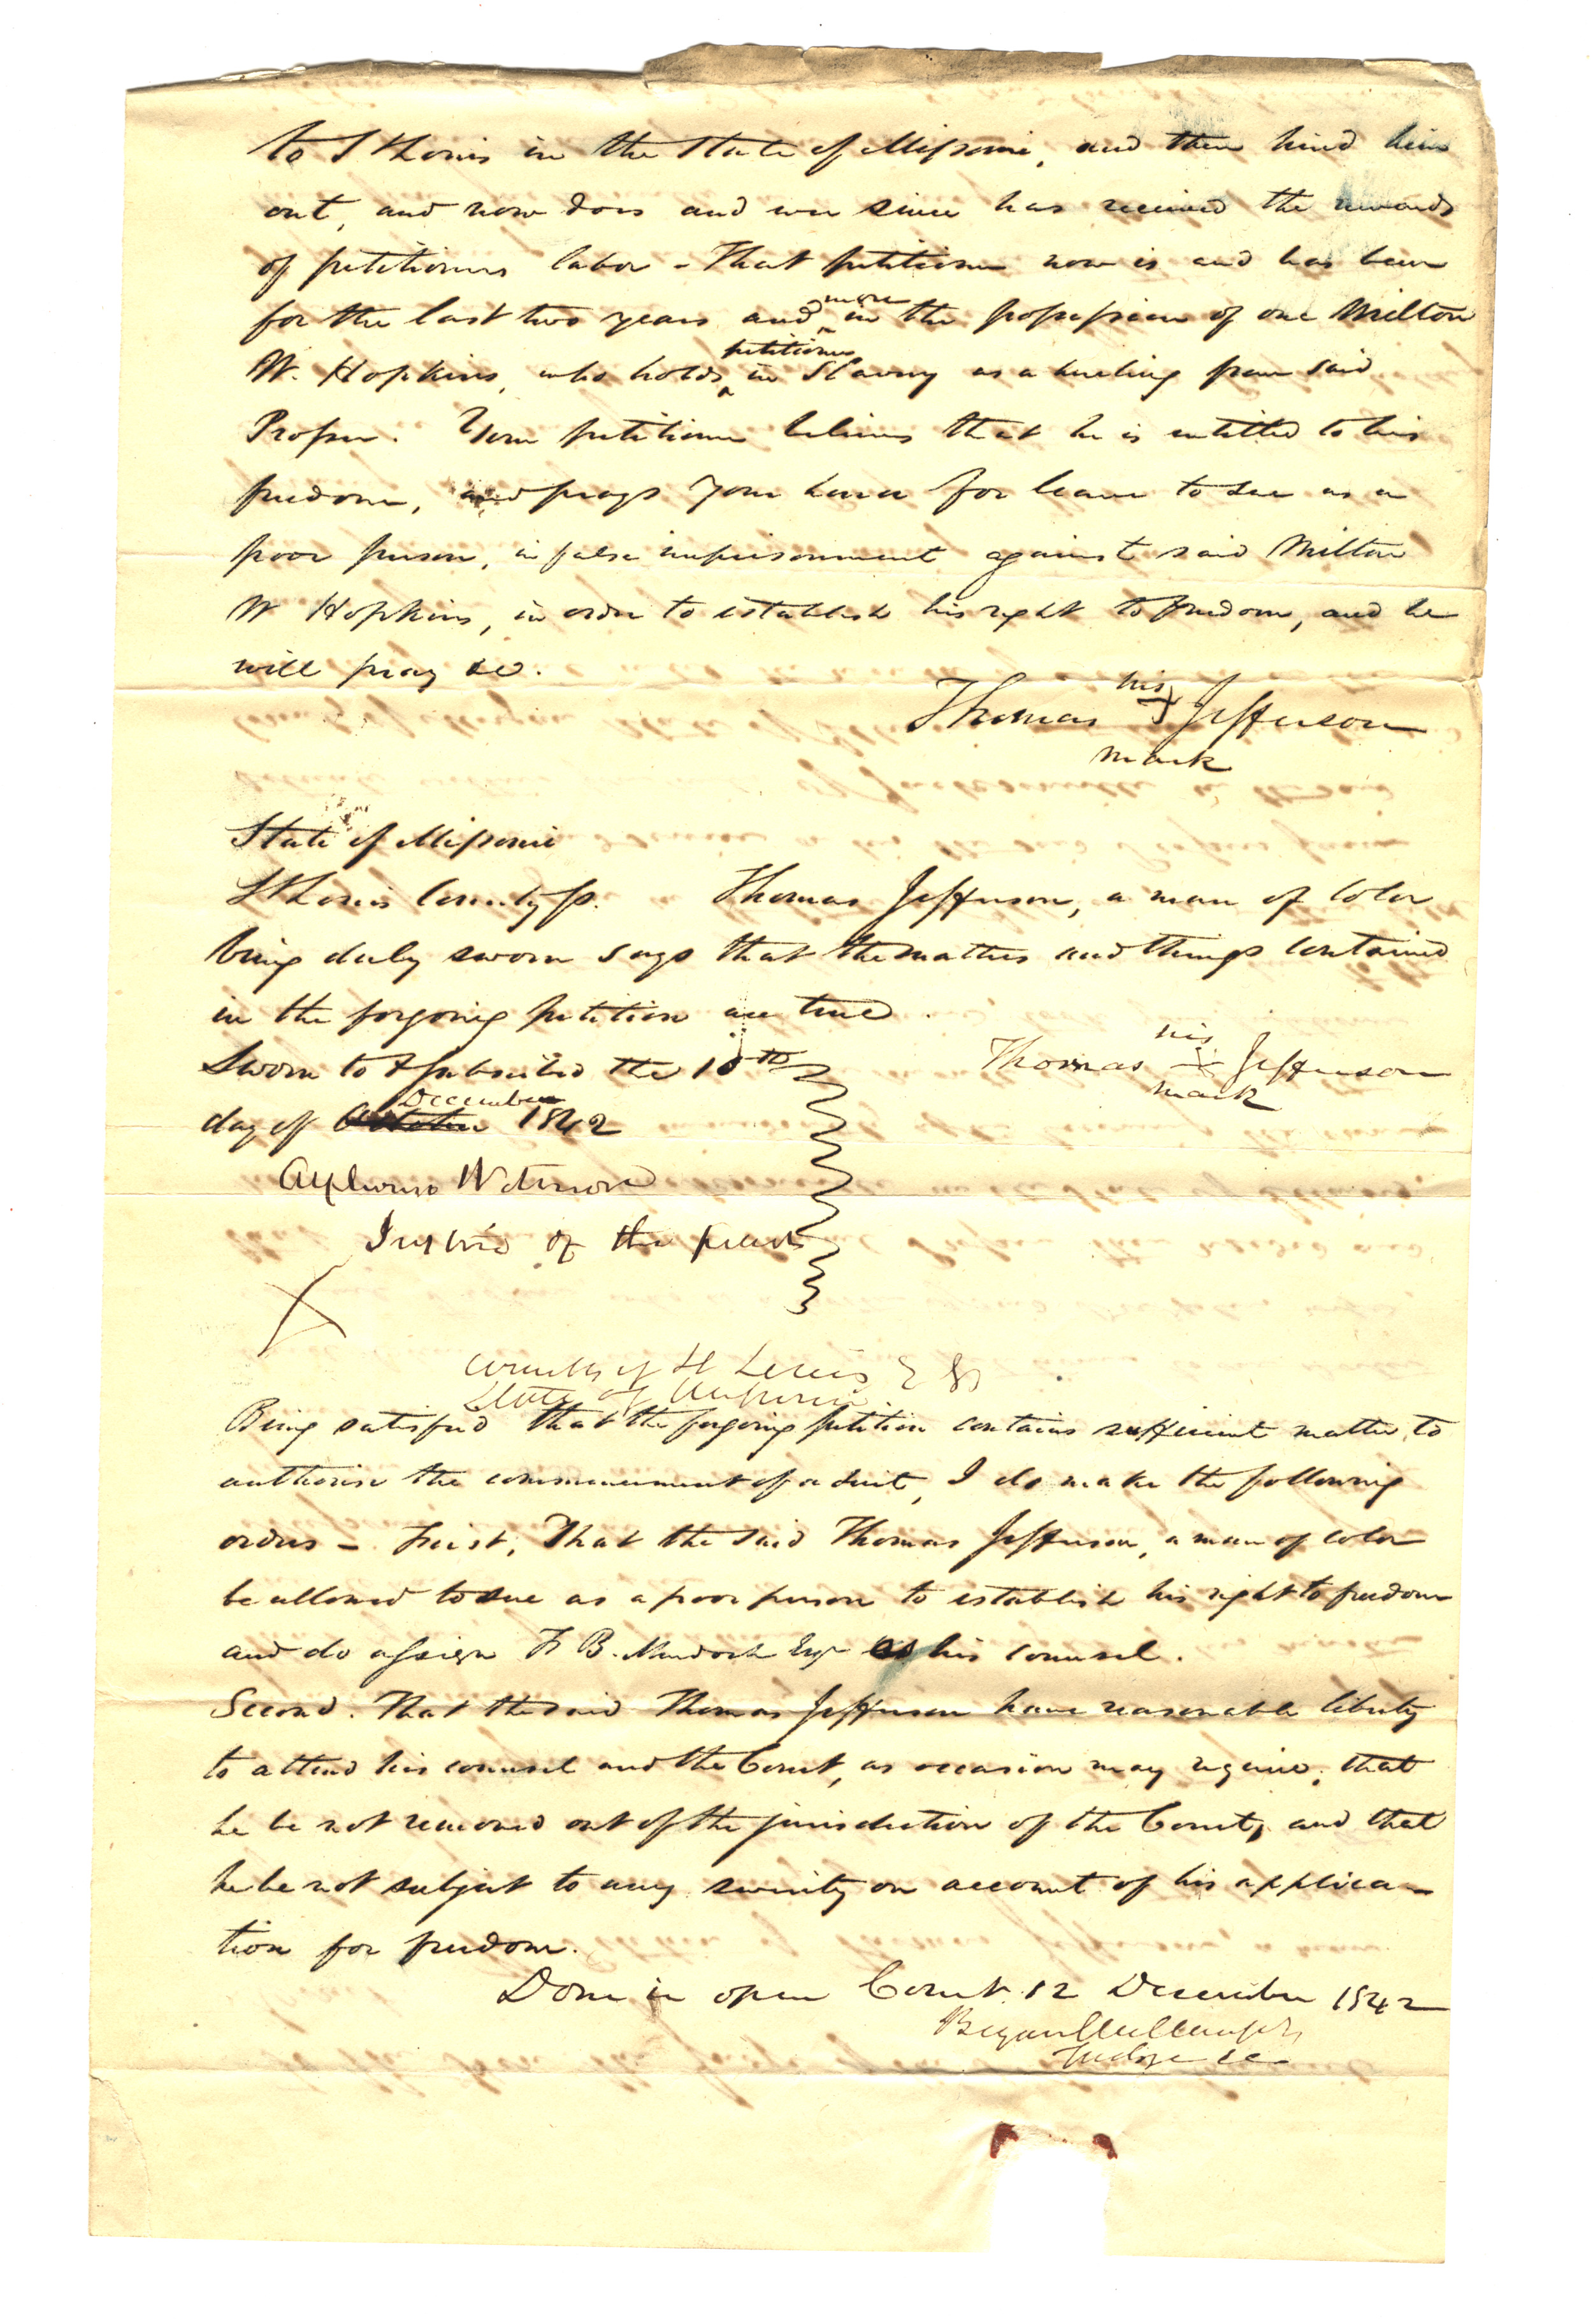 to St Louis in the State of Missouri, and then hired him
out, and now does and ever since has received the rewards
of petitioners labor - That petitioner now is and has been
for the last two years and more in the possession of one Milton
W. Hopkins, who holds petitioner in Slavery as a hireling from said
Prosser. Your petitioner believes that he is entitled to his
freedom, and prays your honor for leave to sue as a
poor person, in false imprisonment against said Milton
W Hopkins, in order to establish his right to freedom, and he
will pray &c.
his
Thomas + Jefferson
mark
State of Missouri
St Louis County ss. Thomas Jefferson, a man of Color
being duly sworn says that the matters and things contained
in the forgoing petition are true.
Sworn to & subscribed the 10th
day of October December 1842
his
Thomas + Jefferson
mark
Alphonso Wetmore
Justice of the peace
County of St Louis } ss
State of Missouri
Being satisfied that the forgoing petition contains sufficient matter to
authorise the commencement of a suit, I do make the following
orders - First, That the said Thomas Jefferson, a man of color
be allowed to sue as a poor person to establish his right to freedom
and do assign F B. Murdoch Esqr as his counsel.
Second. That the said Thomas Jefferson have reasonable liberty
to attend his counsel and the Court, as occasion may require, that
he be not removed out of the jurisdiction of the Court, and that
he be not subject to any severity on account of his applica-
tion for freedom.
Done in open Court 12 December 1842
Bryan Mullanphy
Judge &c